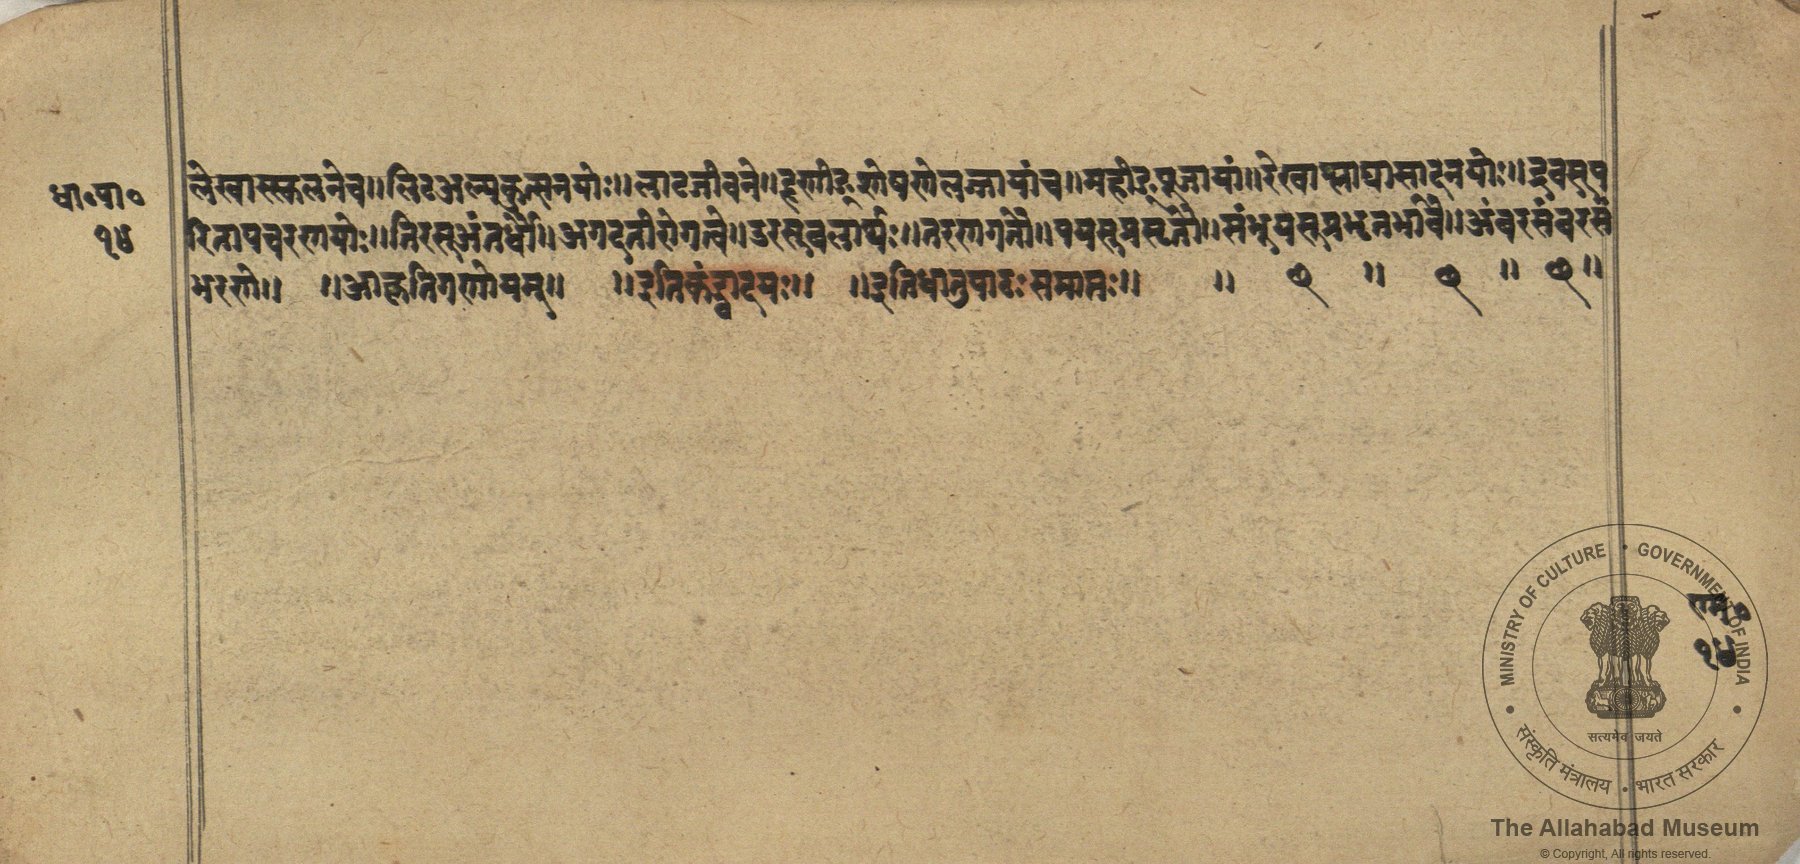 धा॰पा॰
१४
लेखास्स्कलनेच॥लिटअल्पकुत्सनयोः॥लाटजीवने॥हृणीङ्रोषणेलज्जायांच॥महीङ्पूजायां॥रेखाश्लाघासादनयोः॥द्रुवसुप
रितापचरणयोः॥तिरसुअंतर्धौ॥अगदनीरोगत्वे॥उरसुबलार्थः॥तरणगतौ॥पयसुप्रसृतौ॥संभुयसुप्रभूतभावे॥अंबरसंबरसं
भरणे॥ ॥आकृतिगणोयम्॥ ॥इतिकंड्वादयः॥ ॥इतिधातुपाठःसमाप्तः॥ ॥ ॥ ॥ ॥
राम॰
१४
MINISTRY OF CULTURE • GOVERNMENT OF INDIA
सत्यमेव जयते
संस्कृति मंत्रालय • भारत सरकार
The Allahabad Museum
© Copyright, All rights reserved.